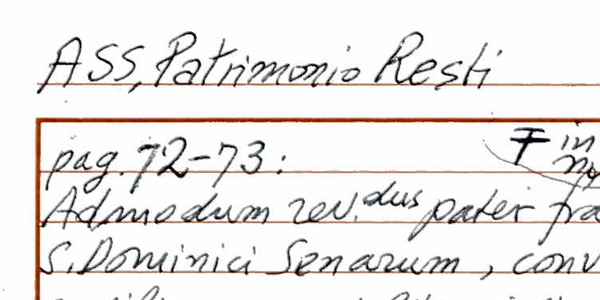 ASS, Patrimonio Resti
pag. 72-73: F in
Admodum rev.dus pater fra
S. Dominici Senarum, conv